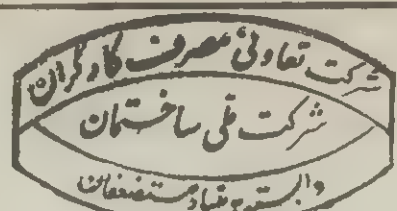 شرکت تعاونی مصرف کارگران
شرکت ملی ساختمان
وابسته به بنیاد مستضعفان